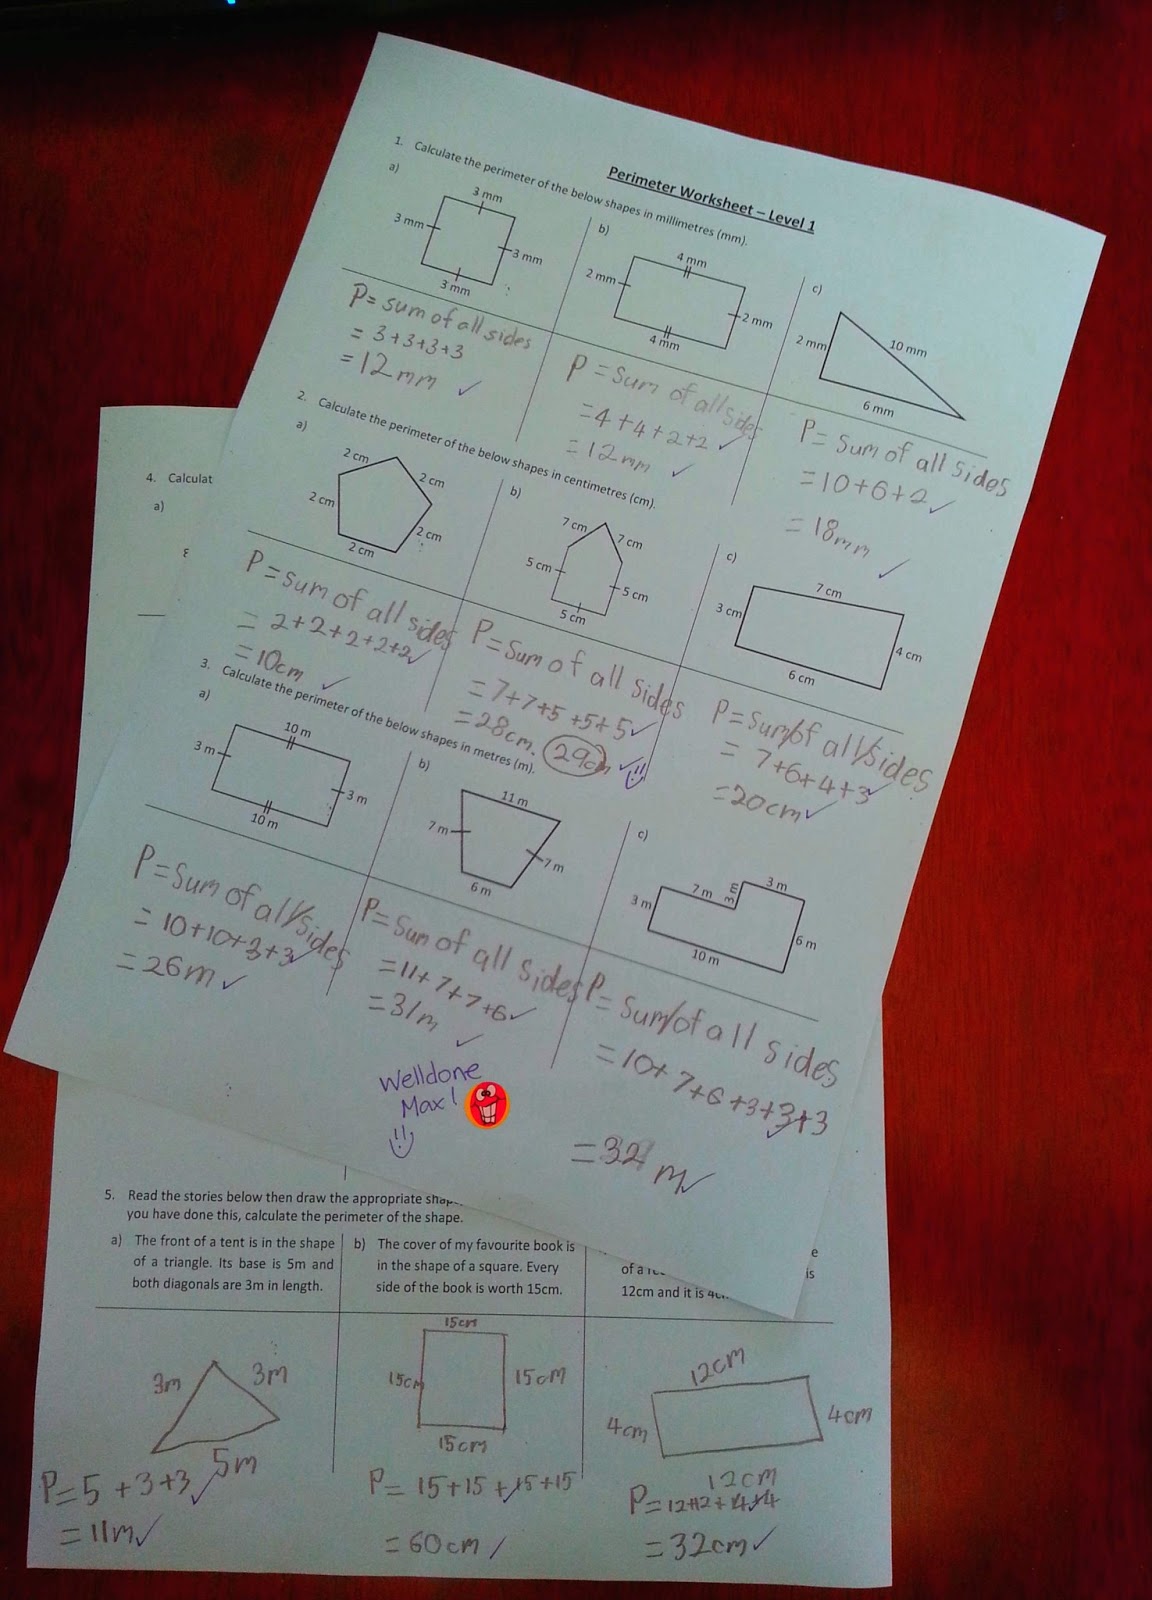 Perimeter Worksheet – Level 1
1. Calculate the perimeter of the below shapes in millimetres (mm).
a)
3 mm
3 mm
3 mm
3 mm
P= sum of all sides
= 3+3+3+3
= 12mm ✓
b)
4 mm
2 mm
2 mm
4 mm
P = Sum of all sides
= 4 + 4 + 2 + 2 ✓
= 12mm ✓
c)
2 mm
10 mm
6 mm
P= Sum of all sides
= 10 + 6 + 2 ✓
= 18mm ✓
2. Calculate the perimeter of the below shapes in centimetres (cm).
a)
2 cm
2 cm
2 cm
2 cm
2 cm
P = sum of all sides
= 2+2+2+2+2 ✓
= 10cm ✓
b)
7 cm
7 cm
5 cm
5 cm
5 cm
P= Sum of all sides
= 7+7+5+5+5 ✓
= 28cm. 29cm ✓
c)
7 cm
3 cm
4 cm
6 cm
P= Sum/of all/sides
= 7+6+4+3 ✓
= 20cm ✓
3. Calculate the perimeter of the below shapes in metres (m).
a)
10 m
3 m
3 m
10 m
P= Sum of all/sides
= 10+10+3+3 ✓
= 26m ✓
b)
11 m
7 m
7 m
6 m
P= Sum of all sides
= 11+7+7+6 ✓
= 31m ✓
c)
3 m
7 m
3 m
3 m
6 m
10 m
P= Sum/of all sides
= 10+7+6+3+3+3 ✓
= 32 m ✓
Welldone
Max!
4. Calculat
a)
5. Read the stories below then draw the appropriate
you have done this, calculate the perimeter of the shape.
a) The front of a tent is in the shape
of a triangle. Its base is 5m and
both diagonals are 3m in length.
3m
3m
5m
P= 5 + 3+3 ✓
= 11m ✓
b) The cover of my favourite book is
in the shape of a square. Every
side of the book is worth 15cm.
15cm
15cm
15cm
15cm
P= 15+15+15+15
= 60cm ✓
of a
is
12cm and it is
12cm
4cm
4cm
12cm
P= 12+12+4+4
= 32cm ✓